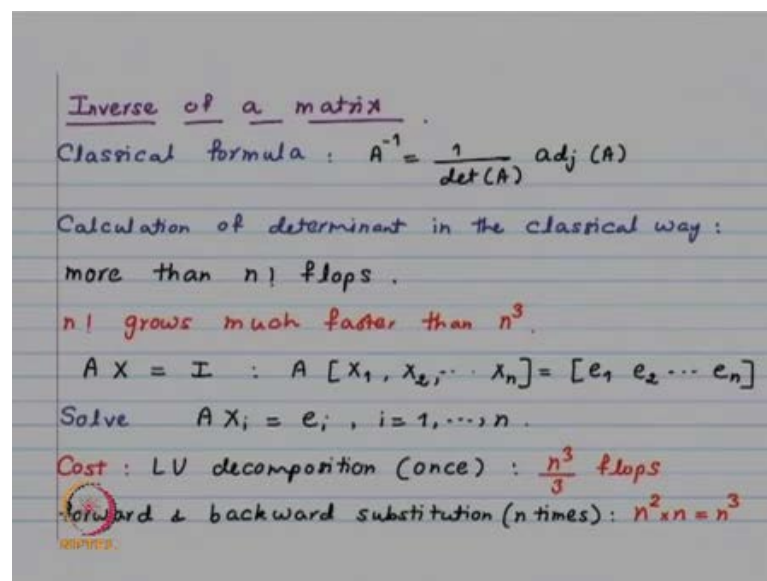 Inverse of a matrix.
Classical formula : A⁻¹ = 1/det(A) adj (A)
Calculation of determinant in the classical way :
more than n! flops.
n! grows much faster than n³.
A X = I : A [x₁, x₂, ... xₙ] = [e₁ e₂ ... eₙ]
Solve A xᵢ = eᵢ, i = 1, ..., n.
Cost : LU decomposition (once) : n³/3 flops
forward & backward substitution (n times) : n² x n = n³
NPTEL